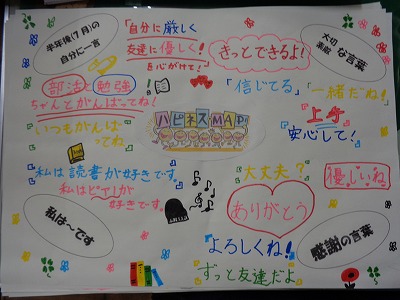 半年後(7月)の
自分に一言
「自分に厳しく
友達に優しく!」
を心がけて!
きっとできるよ!
大切
素敵 な言葉
部活と勉強
ちゃんとがんばってね!
「信じてる」
「一緒だね!」
いつもがんばってね
ハピネスMAP
「上手」
安心して!
私は読書が好きです。
私はピアノが
好きです。
大丈夫?
優しいね
ありがとう
私は〜です
よろしくね!
感謝の言葉
ずっと友達だよ